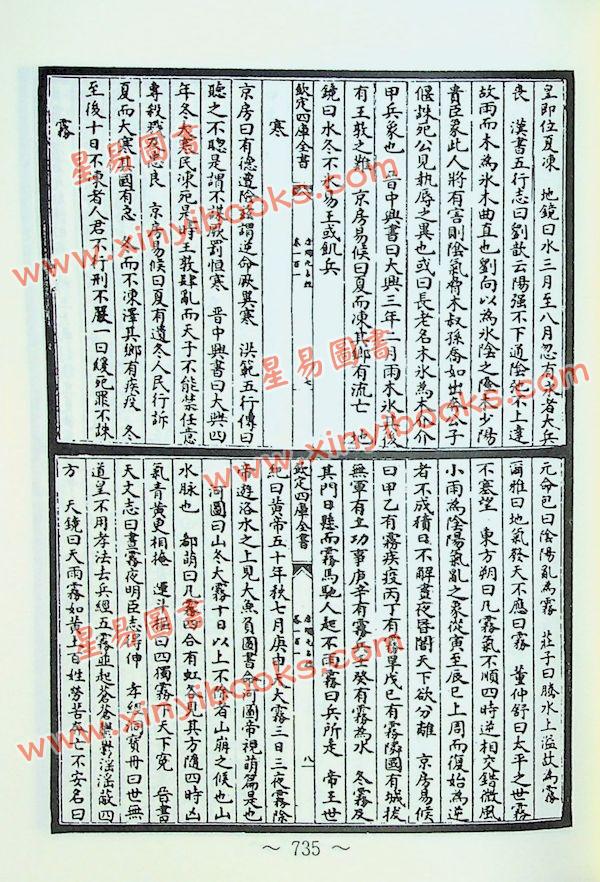 皇即位夏凍　地鏡曰水三月至八月忽有冰者大兵
喪　漢書五行志曰劉歆云陽强不下通陰
故雨而木為冰木曲直也劉向以為冰陰之盛木少陽
貴臣象此人將有害則陰氣脅木叔孫喬如出奔公子
偃誅死公見執辱之異也或曰長老名木冰為木介介
甲兵象也　晉中興書曰大興三年二月雨木冰後
有王敦之難　京房易候曰夏而凍其鄉有流亡　地
鏡曰水冬不冰易王或飢兵
欽定四庫全書
卷一百一
七
寒
京房曰有德遭險茲謂逆命厥異寒　洪範五行傳曰
聽之不聰是謂不謀厥罰恒寒　晉中興書曰大興四
年冬大寒民凍死是時王敦肆亂而天子不能禁任意
專殺忠良　京房易候曰夏有遺冬人民行訴
夏而大寒其國有急　冬而不凍澤其鄉有疾疫　冬
至後十日不凍者人君不行刑不嚴一曰緩死罪不誅
霧
元命包曰陰陽亂為霧　莊子曰騰水上溢故為霧
爾雅曰地氣發天不應曰霧　董仲舒曰太平之世霧
不塞望　東方朔曰凡霧氣不順四時逆相交錯微風
小雨為陰陽氣亂之象從寅至辰巳上周而復始為逆
者不成積日不解晝夜昏闇天下欲分離　京房易候
曰甲乙有霧疾疫丙丁有霧旱戊巳有霧隣國有城拔
無軍有立功事庚辛有霧兵壬癸有霧為水　冬霧及
其門日懸而霧馬馳人起不雨霧曰兵所走　帝王世
欽定四庫全書
卷一百一
八
紀曰黃帝五十年秋七月庚申天大霧三日三夜霧除
帝遊洛水之上見大魚負圖書命河圖帝視萌篇是也
河圖曰山冬大霧十日以上不除者山崩之候也山
水脉也　郗萌曰凡霧四合有虹各見其方隨四時凶
氣青黄更相掩　運斗樞曰四濁霧天下冤　晉書
天文志曰晝霧夜明臣志得伸　寶冊曰世無
道皇不用孝法去兵經五霧並起蒼蒼
方　天鏡曰天雨霧如黄土百姓勞苦死亡不安名曰
星易圖書
www.xinyibooks.com
星易圖書
www.xinyibooks.com
星易圖書
www.xinyibooks.com
～ 735 ～